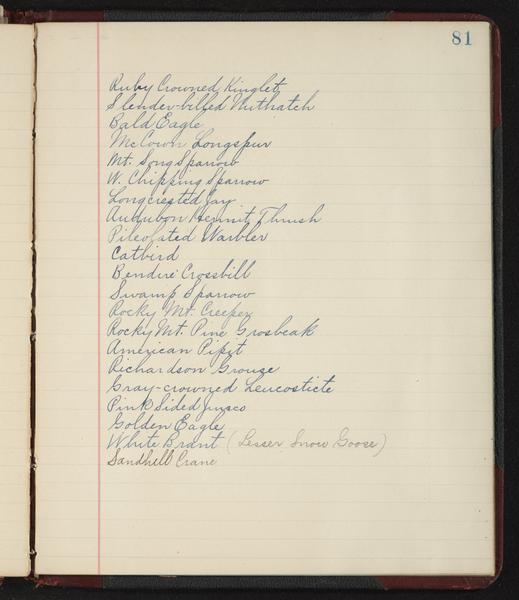 81
Ruby Crowned Kinglet
Slender-billed Nuthatch
Bald Eagle
McCown Longspur
Mt. Song Sparrow
W. Chipping Sparrow
Longcrested Jay
Audubon Hermit Thrush
Pileolated Warbler
Catbird
Bendire Crossbill
Swamp Sparrow
Rocky Mt. Creeper
Rocky Mt. Pine Grosbeak
American Pipit
Richardson Grouse
Gray-crowned Leucosticte
Pink Sided Junco
Golden Eagle
White Brant (Lesser Snow Goose)
Sandhill Crane